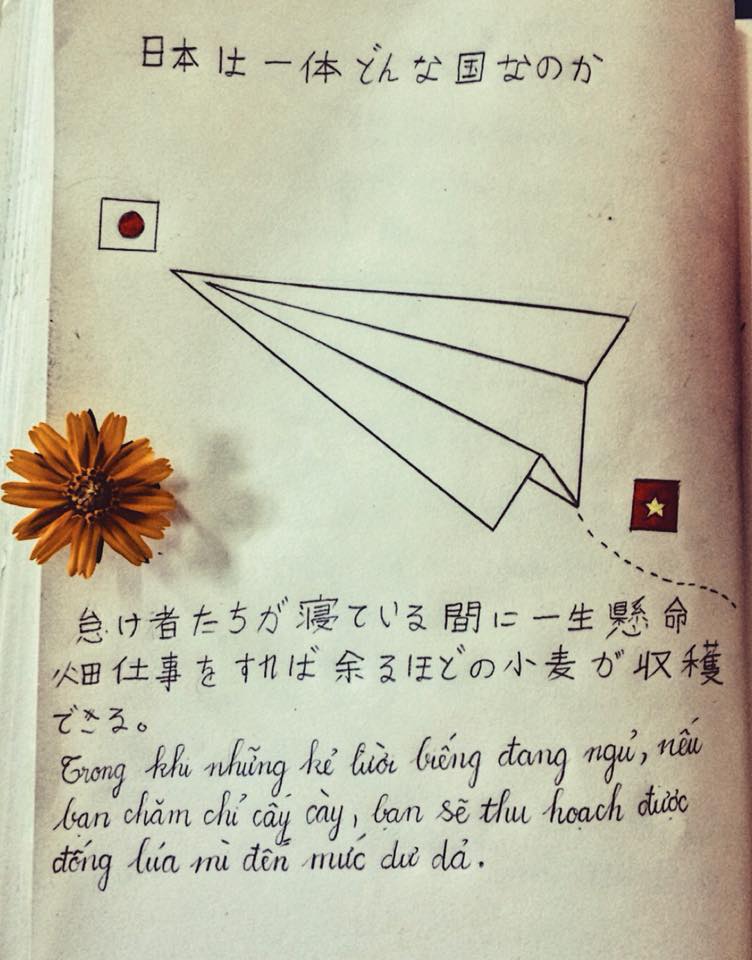 日本は一体どんな国なのか
怠け者たちが寝ている間に一生懸命
畑仕事をすれば余るほどの小麦が収穫
できる。
Trong khi những kẻ lười biếng đang ngủ, nếu
bạn chăm chỉ cấy cày, bạn sẽ thu hoạch được
đống lúa mì đến mức dư dả.